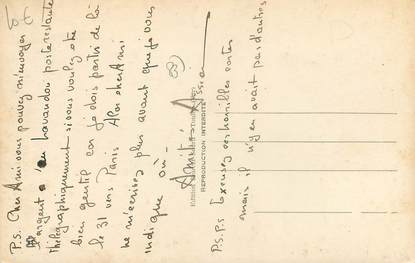 P.S. Cher Ami vous pouvez m'envoyer
l'argent a Lavandou poste restante
télégraphiquement si vous voulez être
bien gentil car je dois partir de là
le 31 vers Paris Alors cher Ami
ne m'écrivez plus avant que je vous
indique où -
Amitié
REPRODUCTION INTERDITE
P.S.P.S. Excusez ces horribles cartes
mais il n'y en avait pas d'autres